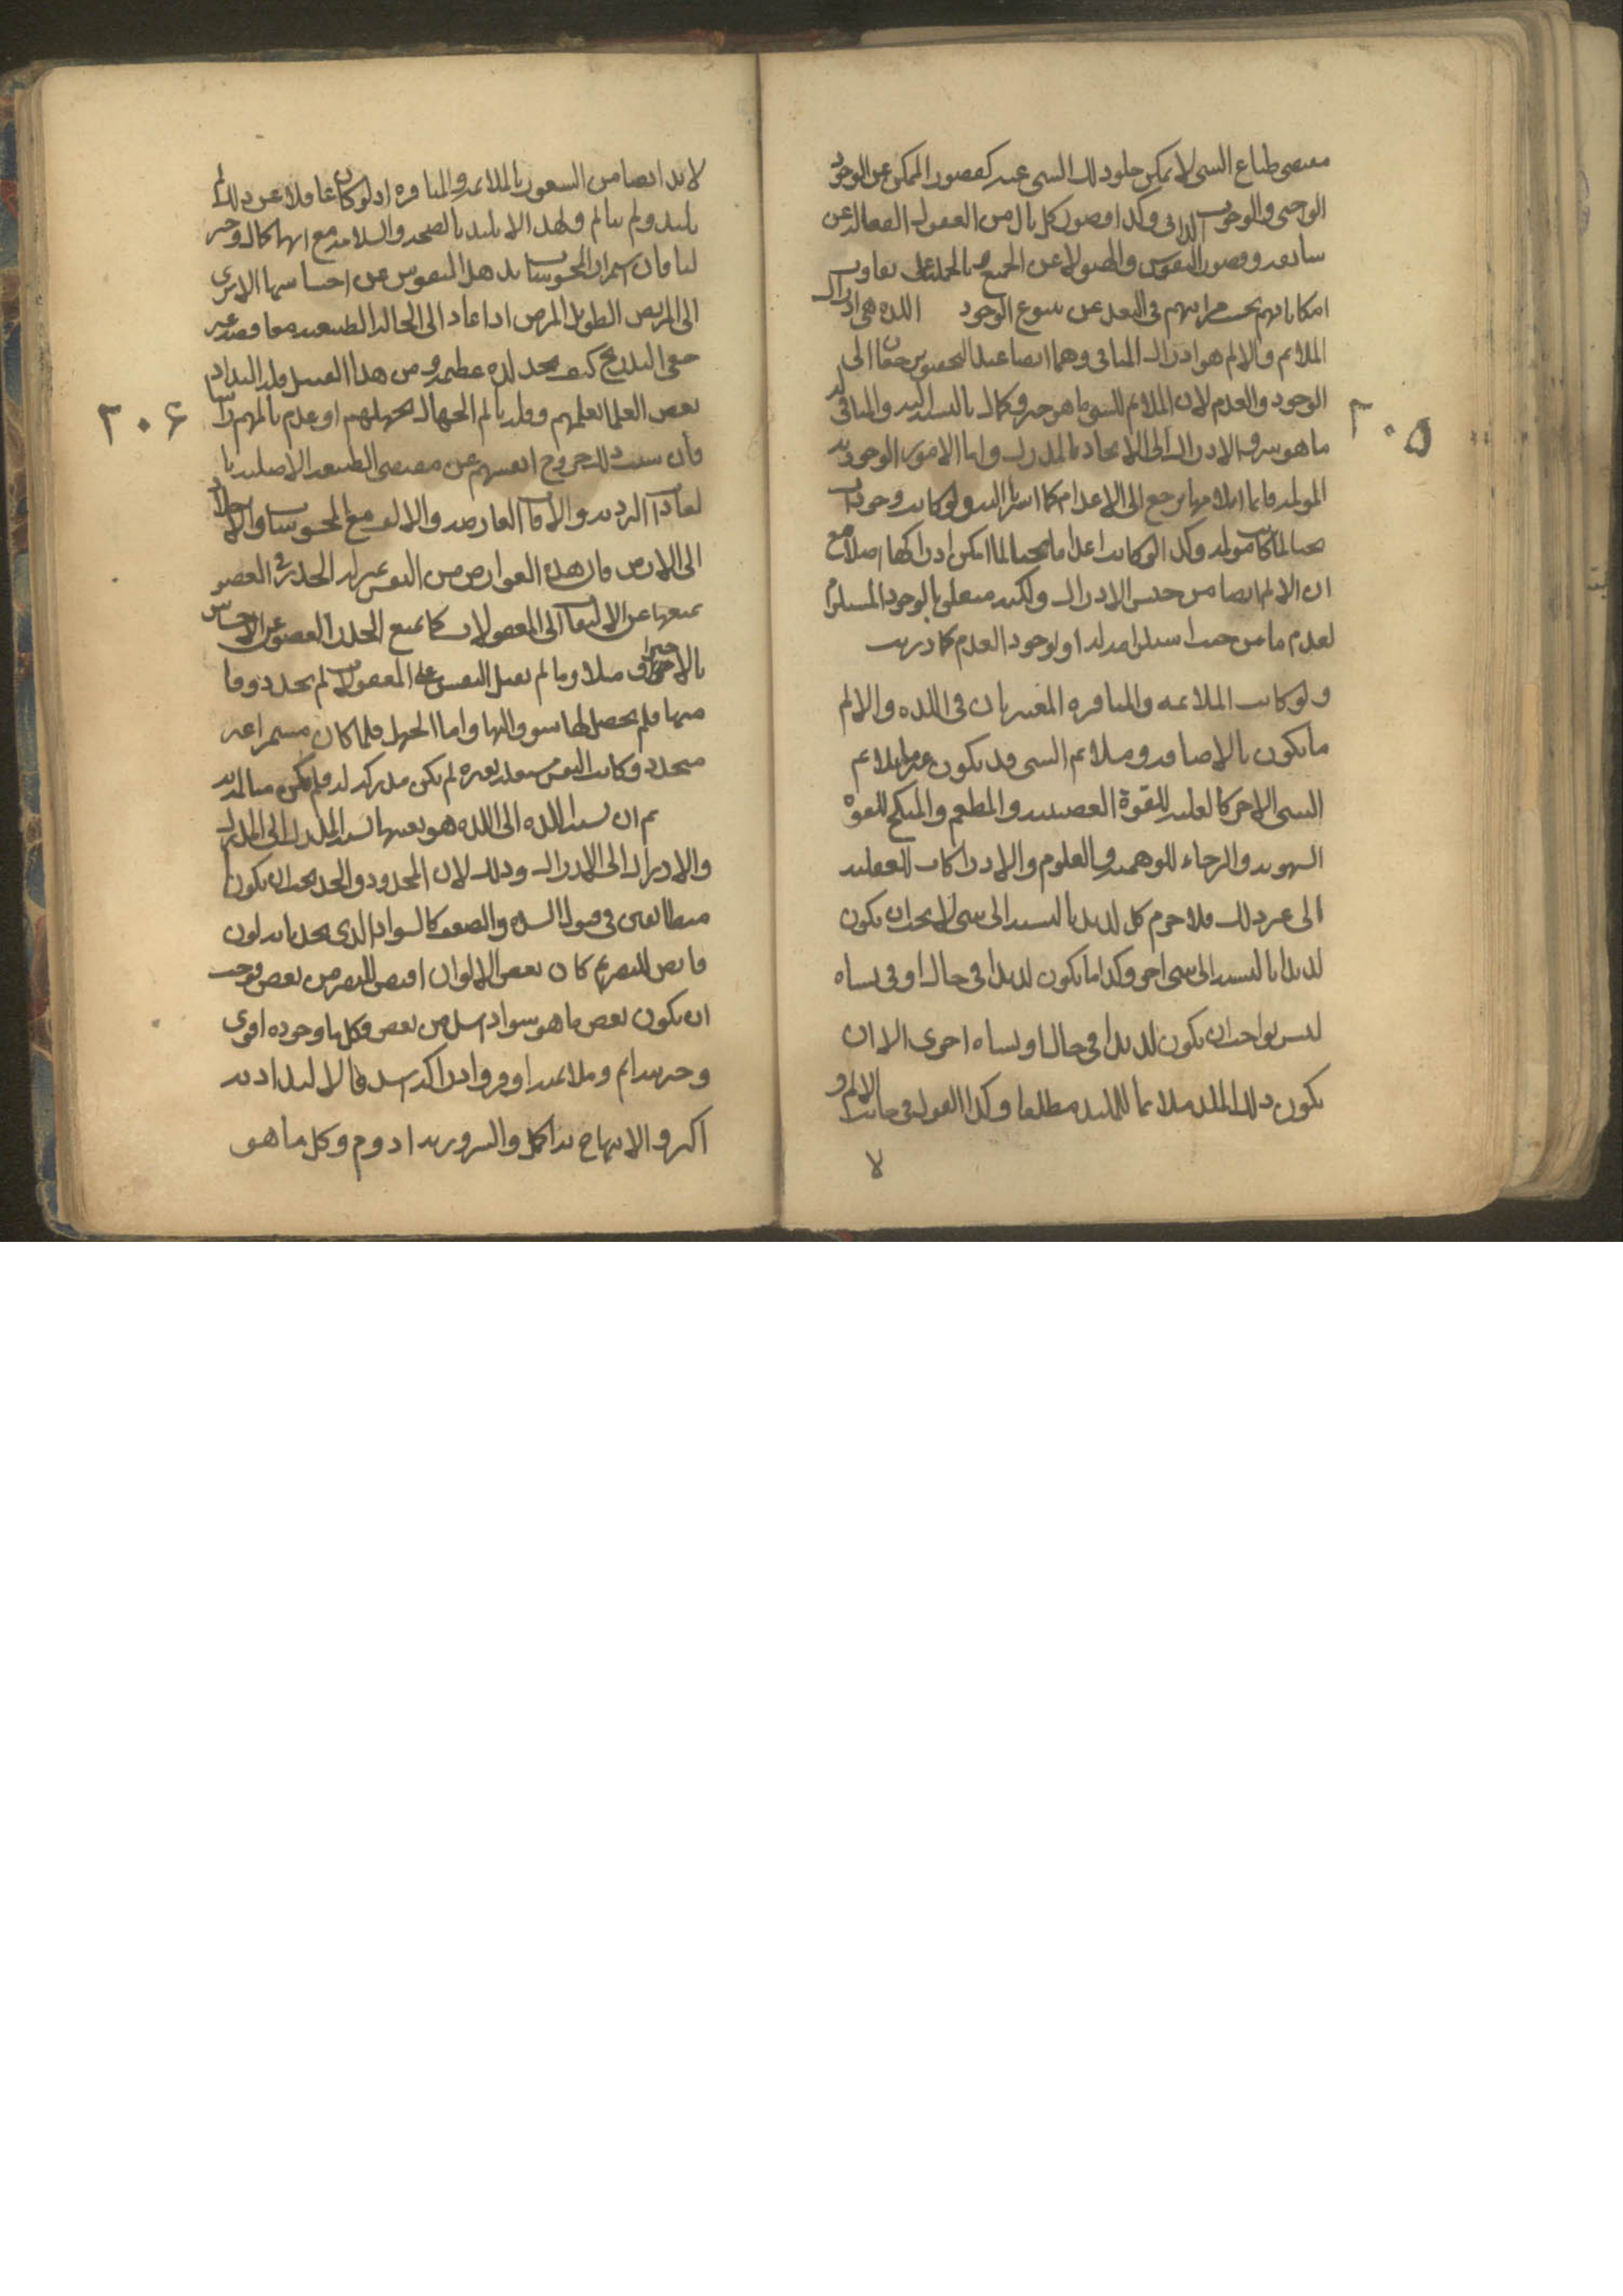 مقتضى طباع الشي لا يمكن خلو ذلك الشي عنه كقصور الممكن عن الوجود
الواجبي والوجوب الذاتي وكذا قصور كل تال من العقول الفعالة عن
سابقه وقصور النفوس والهيولا عن الجميع وبالجملة على تفاوت
امكاناتهم بحسب مراتبهم في البعد عن ينبوع الوجود اللذة هي ادراك
الملائم والالم هو ادراك المنافي وهما ايضا عند التحقيق يرجعان الى
الوجود والعدم لان الملائم للشي ما هو خير وكمال بالنسبة اليه والمنافي له
ما هو شر والادراك الى الاتحاد بالمدرك واما الامور الوجودية
المولمة فانما ايلامها يرجع الى الاعدام كما اشرنا اليه ولو كانت وجودات
محضا لما كانت مولمة وكذا لو كانت اعداما محضا لما امكن ادراكها اصلا مع
ان الالم ايضا من جنس الادراك ولكنه متعلق بالوجود المستلزم
لعدم ما من حيث استلزامه له او لوجود العدم كما دريت
ولو كانت الملائمه والمنافره المعتبرتان في اللذه والالم
ما يكون بالاضافة وملائم الشي قد يكون غير ملائم
الشي الاخر كالغلبه للقوة الغضبيه والمطعم والمنكح للقوة
الشهويه والرجاء للوهميه والعلوم والادراكات للعقليه
الى غير ذلك فلا جرم كل لذيذ بالنسبه الى شي لا يجب ان يكون
لذيذا بالنسبه الى شي اخر وكذا ما يكون لذيذا في حال او في نشاه
ليس بواجب ان يكون لذيذا في حال او نشاه اخرى الا ان
يكون ذلك الملذ ملائما للملتذ مطلقا وكذا القول في جانب الالم و
لا
٢٠٥
لا بد ايضا من الشعور بالملائمه والمنافره اذ لو كان غافلا عن ذلك لم
يلتذ ولم يتالم ولهذا لا يلتذ بالصحه والسلامه مع انها كمال وخير
لنا فان استمرار المحسوسات يذهل النفوس عن احساسها الا ترى
الى المريض الطويل المرض اذا عاد الى الحالة الطبيعيه مغافصة غير
خفي التدريج كيف يجد لذه عظيمه ومن هذا القبيل قلة التذاذ
بعض العلما بعلمهم وقلة تالم الجهال بجهلهم او عدم تالمهم راسا
فان سبب ذلك خروج انفسهم عن مقتضى الطبيعه الاصليه با
لعادات الرديه والافات العارضه والالف مع المحسوسات والاخلاد
الى الارض فان هذه العوارض من النفس بمنزلة الخدر في العضو
يمنعها عن الالتفات الى المعقولات كما يمنع الخدر العضو عن الاحساس
بالاحراق مثلا وما لم تقبل النفس على المعقولات لم يحدث ذوقا
منها فلم يحصل لها شوق اليها واما الجهل فلما كان مستمرا غير
متجدد وكانت النفس مشغله بغيره لم يكن مدركه له فلم يكن متالمه به
ثم ان نسبه اللذه الى اللذه هو بعينها نسبه المدرك الى المدرك
والادراك الى الادراك وذلك لان المحدود والحد يجب ان يكونا
متطابقين في قبول الشده والضعف كالسواد الذي يحد بانه لون
قابض للبصر ثم كان بعض الالوان اقبض للبصر من بعض فوجب
ان يكون بعض ما هو سواد اشد من بعض وكل ما وجوده اقوى
وخيريته اتم وملائمته اوفر وادراكه اشد فالالتذاذ به
اكثر والابتهاج به اكمل والسرور به ادوم وكل ما هو
٢٠۶